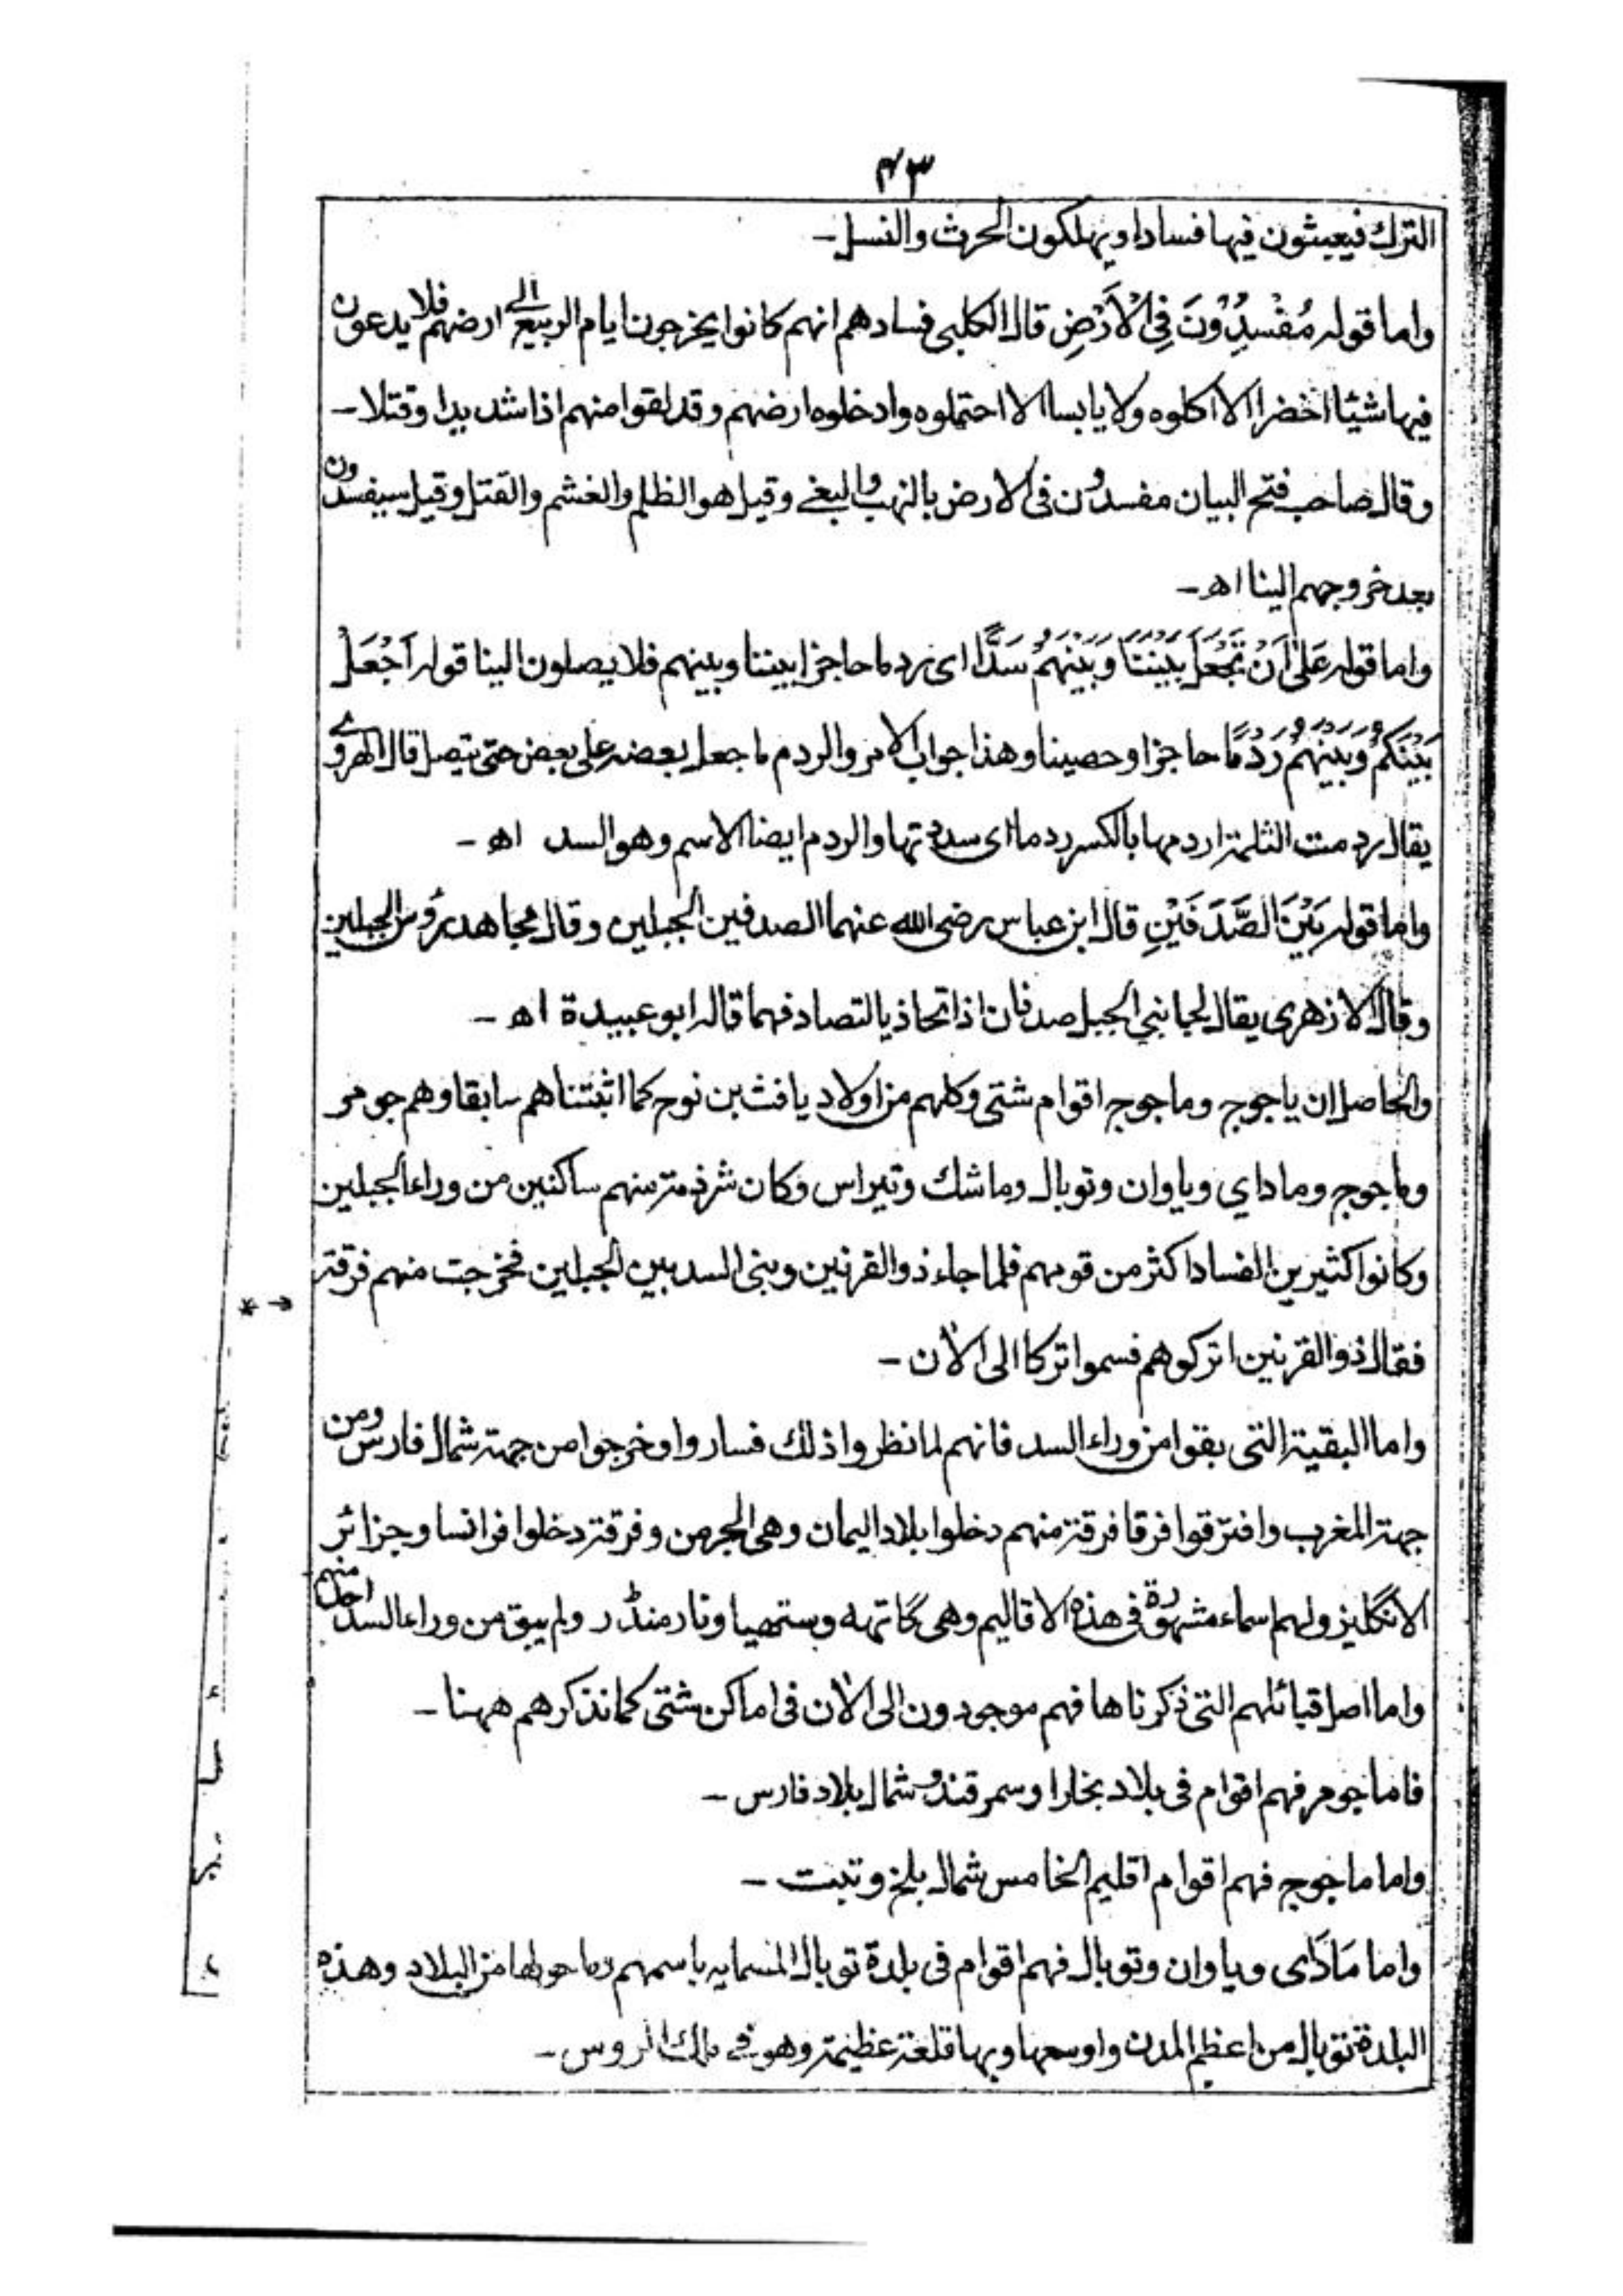 ٤٣
الترك فيعيثون فيها فسادا ويهلكون الحرث والنسل ـ
واما قوله مُفْسِدُوْنَ فِي الْاَرْضِ قال الكلبى فسادهم انهم كانوا يخرجون ايام الربيع الى ارضهم فلا يدعون
فيها شيئا اخضر الا اكلوه ولا يابسا الا احتملوه وادخلوه ارضهم وقد لقوا منهم اذا شديدا وقتلا ـ
وقال صاحب فتح البيان مفسدون فى الارض بالنهب والبغى وقيل هو الظلم والغشم والقتل وقيل سيفسدون
بعد خروجهم الينا اھ ـ
واما قوله عَلٰى اَنْ تَجْعَلَ بَيْنَنَا وَبَيْنَهُمْ سَدًّا اى ردما حاجزا بيننا وبينهم فلا يصلون الينا قوله اَجْعَلْ
بَيْنَكُمْ وَبَيْنَهُمْ رَدْمًا حاجزا وحصينا وهذا جواب الامر والردم ما جعل بعضه على بعض حتى يتصل قال الهروى
يقال ردمت الثلمة اردمها بالكسر ردما اى سددتها والردم ايضا الاسم وهو السد اھ ـ
واما قوله بَيْنَ الصَّدَفَيْنِ قال ابن عباس رضى الله عنهما الصدفين الجبلين وقال مجاهد رؤس الجبلين
وقال الازهرى يقال لجانبي الجبل صدفان اذا تحاذيا لتصادفهما قاله ابو عبيدة اھ ـ
والحاصل ان ياجوج وماجوج اقوام شتى وكلهم من اولاد يافث بن نوح كما اثبتناهم سابقا وهم جومر
وماجوج وماداي وياوان وتوبال وماشك وتيراس وكان شرذمة منهم ساكنين من وراء الجبلين
وكانوا كثيرين الفساد اكثر من قومهم فلما جاء ذو القرنين وبنى السد بين الجبلين فخرجت منهم فرقة
فقال ذو القرنين اتركوهم فسموا تركا الى الاٰن ـ
واما البقية التى بقوا من وراء السد فانهم لما نظروا ذلك فساروا وخرجوا من جهة شمال فارس ومن
جهة المغرب وافترقوا فرقا فرقة منهم دخلوا بلاد اليمان وهى الجرمن وفرقة دخلوا فرانسا وجزائر
الانگليز ولهم اسماء مشهورة فى هذه الاقاليم وهى گاتهه وستهيا ونارمنڈر ولم يبق من وراء السد احد منهم
واما اصل قبائلهم التى ذكرناها فهم موجودون الى الاٰن فى اماكن شتى كما نذكرهم ههنا ـ
فاما جومر فهم اقوام فى بلاد بخارا وسمرقند وشمال بلاد فارس ـ
واما ماجوج فهم اقوام اقليم الخامس شمال بلخ وتبت ـ
واما مَادَاى وياوان وتوبال فهم اقوام فى بلدة توبال المسمايه باسمهم وما حولها من البلاد وهذه
البلدة توبال من اعظم المدن واوسعها وبها قلعة عظيمة وهو فى ملك الروس ـ